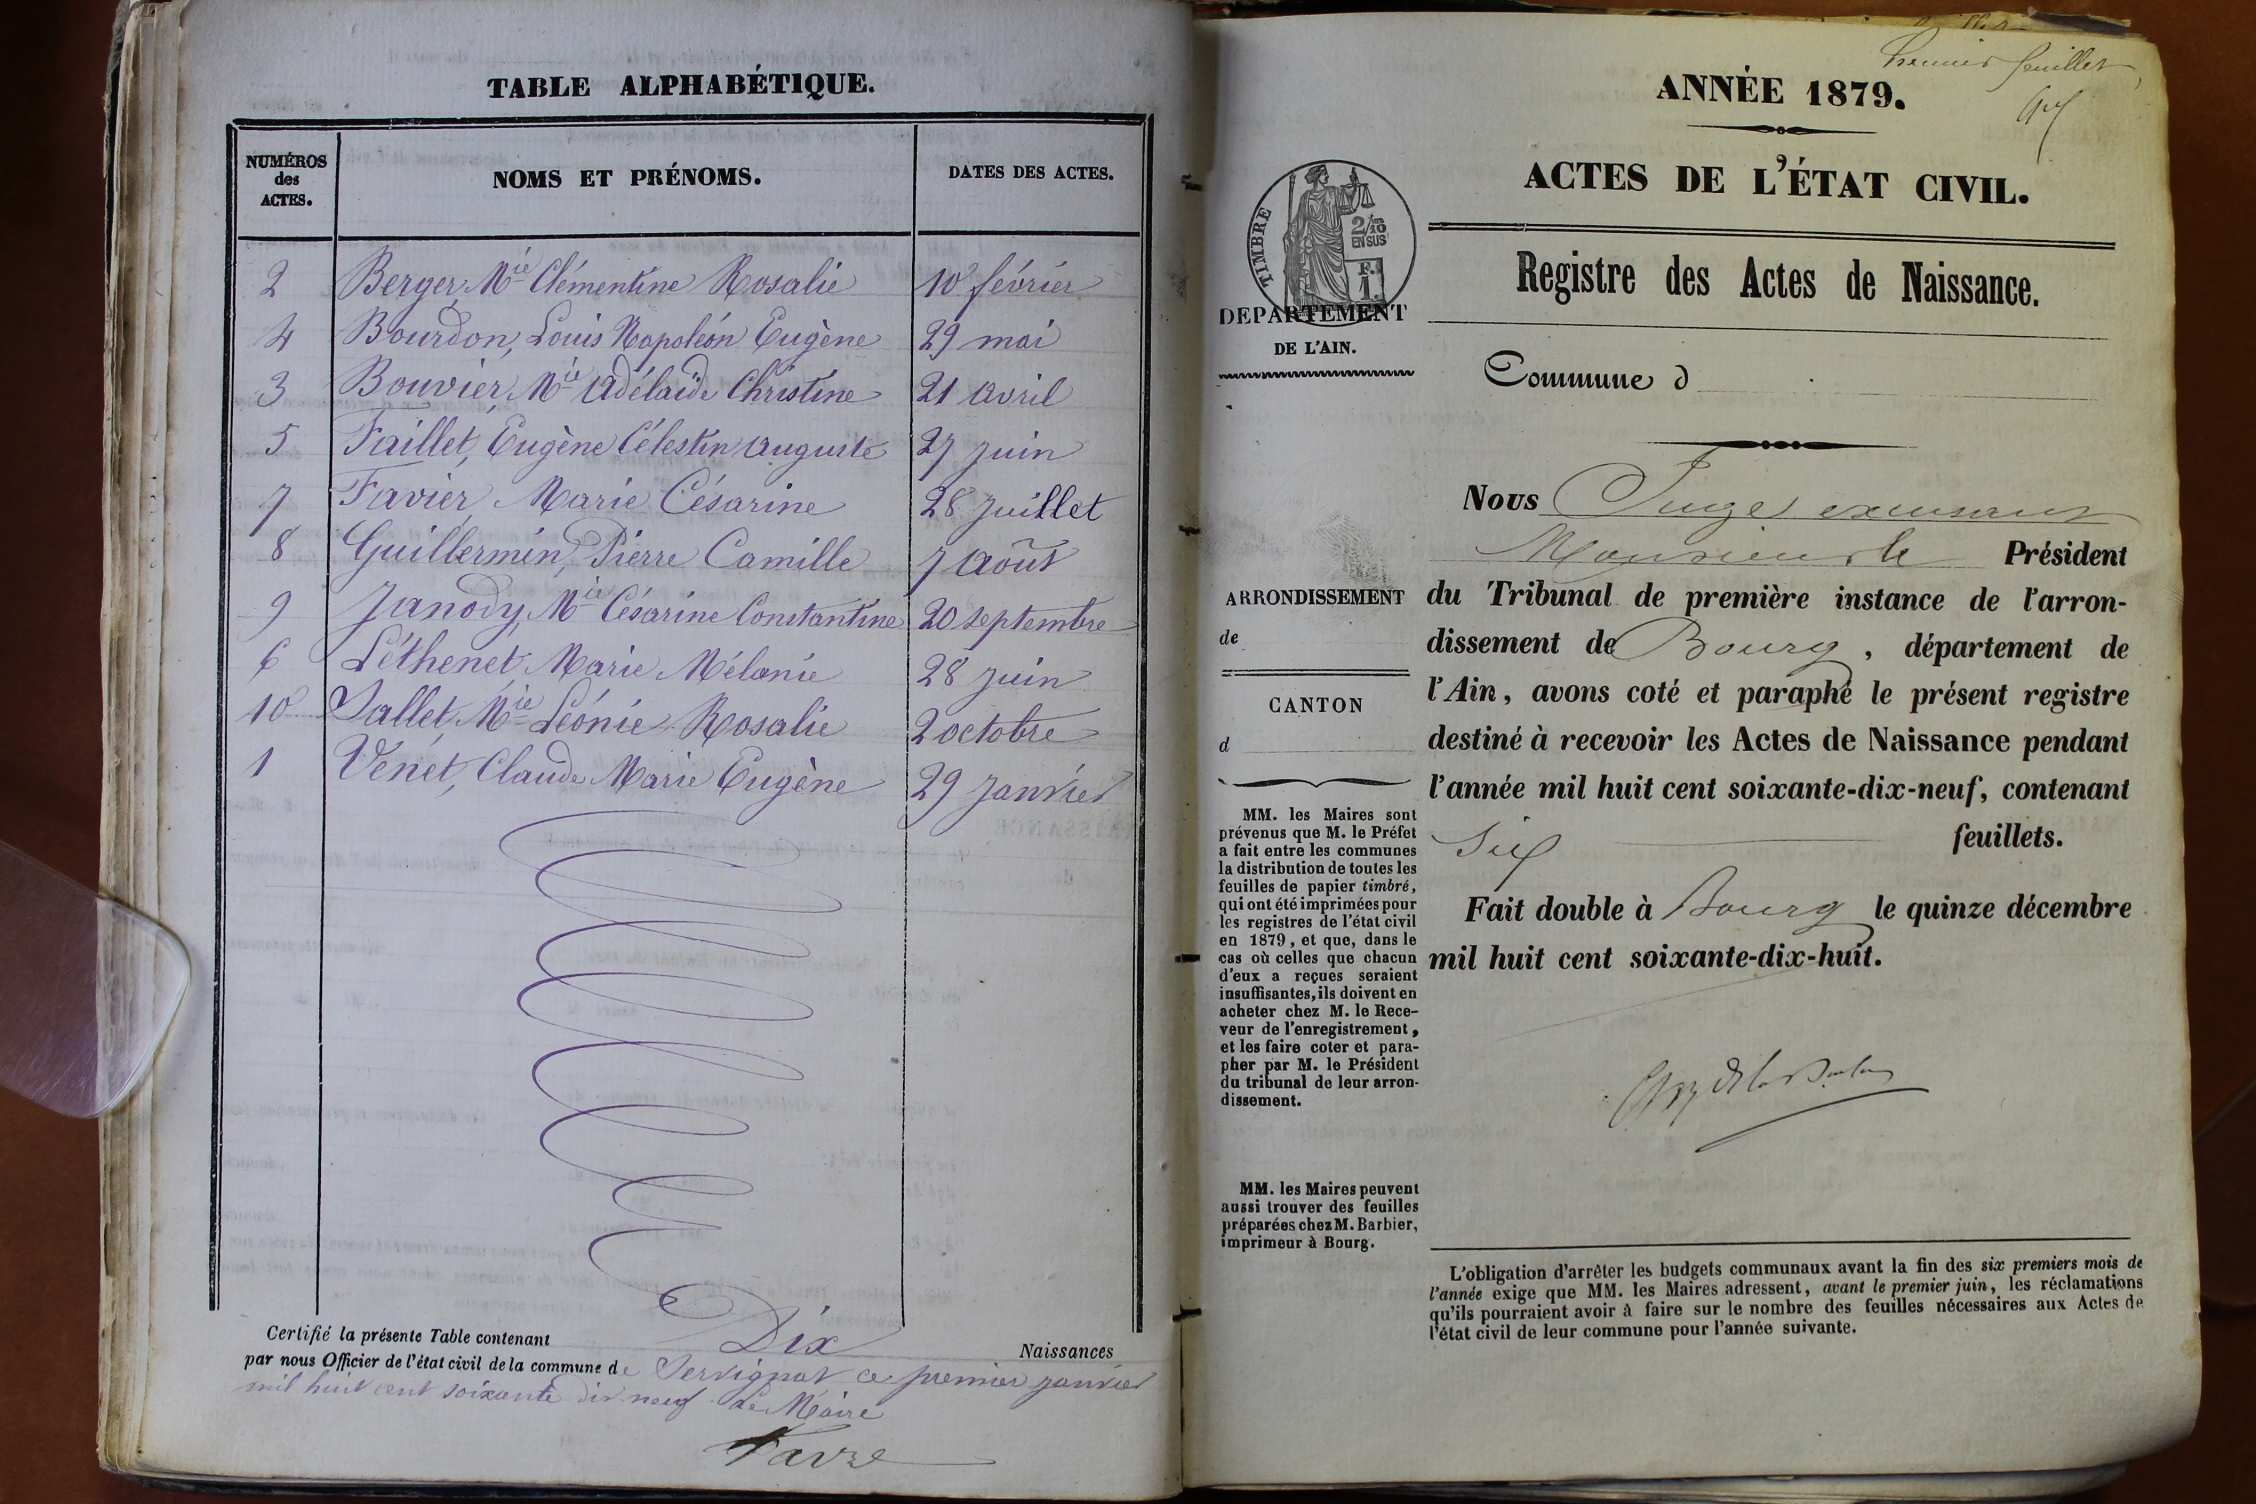 TABLE ALPHABÉTIQUE.
NUMÉROS des ACTES.
NOMS ET PRÉNOMS.
DATES DES ACTES.
2 Berger, Mie Clémentine Rosalie 10 février
4 Bourdon, Louis Napoléon Eugène 29 mai
3 Bouvier, Mie Adélaïde Christine 21 avril
5 Faillet, Eugène Célestin Auguste 27 juin
7 Favier, Marie Césarine 28 juillet
8 Guillermin, Pierre Camille 7 août
9 Janody, Mie Césarine Constantine 20 septembre
6 Léthenet Marie Mélanie 28 juin
10 Sallet, Mie Léonie Rosalie 2 octobre
1 Venet, Claude Marie Eugène 29 janvier
Certifié la présente Table contenant Dix Naissances
par nous Officier de l'état civil de la commune de Servignat ce premier janvier
mil huit cent soixante dix neuf Le Maire
Favre
Premier feuillet
ANNÉE 1879.
ACTES DE L'ÉTAT CIVIL.
Registre des Actes de Naissance.
TIMBRE
2/10 EN SUS
F. 1.
DEPARTEMENT
DE L'AIN.
Commune d
Nous Juge
Monsieur le Président
du Tribunal de première instance de l'arron-
dissement de Bourg, département de
l'Ain, avons coté et paraphé le présent registre
destiné à recevoir les Actes de Naissance pendant
l'année mil huit cent soixante-dix-neuf, contenant
Six feuillets.
Fait double à Bourg le quinze décembre
mil huit cent soixante-dix-huit.
ARRONDISSEMENT
de
CANTON
d
MM. les Maires sont
prévenus que M. le Préfet
a fait entre les communes
la distribution de toutes les
feuilles de papier timbré,
qui ont été imprimées pour
les registres de l'état civil
en 1879, et que, dans le
cas où celles que chacun
d'eux a reçues seraient
insuffisantes, ils doivent en
acheter chez M. le Rece-
veur de l'enregistrement,
et les faire coter et para-
pher par M. le Président
du tribunal de leur arron-
dissement.
MM. les Maires peuvent
aussi trouver des feuilles
préparées chez M. Barbier,
imprimeur à Bourg.
L'obligation d'arrêter les budgets communaux avant la fin des six premiers mois de
l'année exige que MM. les Maires adressent, avant le premier juin, les réclamations
qu'ils pourraient avoir à faire sur le nombre des feuilles nécessaires aux Actes de
l'état civil de leur commune pour l'année suivante.